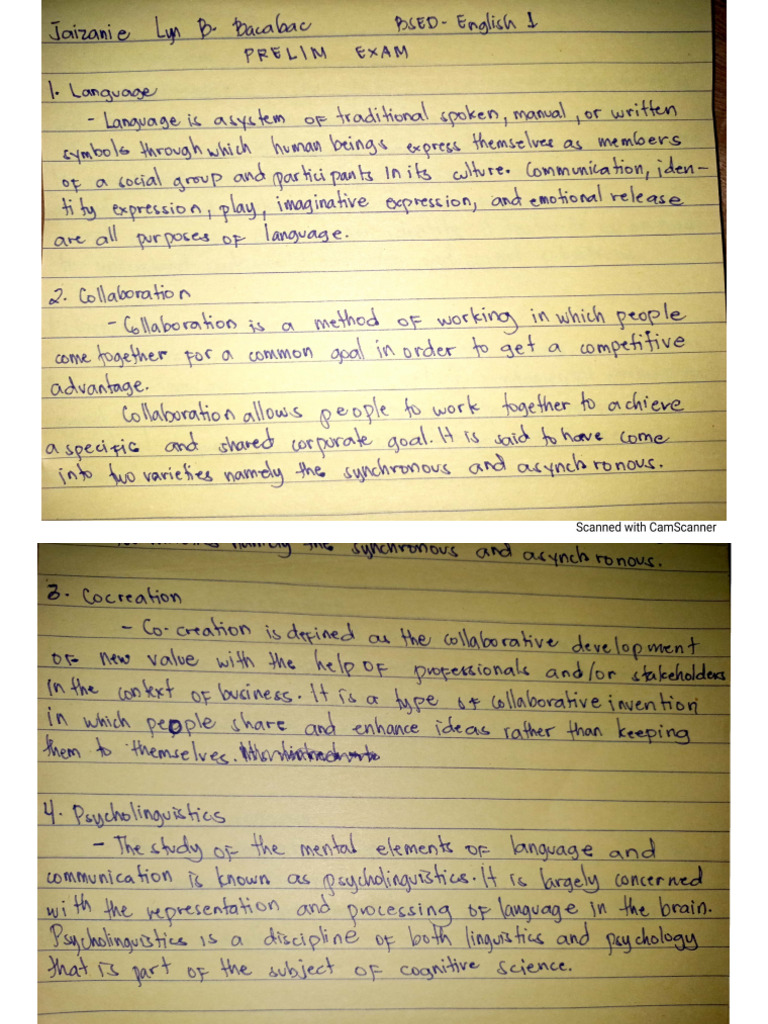 Jaizanie Lyn B. Bacabac BSED - English 1
PRELIM EXAM
1. Language
- Language is a system of traditional spoken, manual, or written
symbols through which human beings express themselves as members
of a social group and participants in its culture. Communication, iden-
tity expression, play, imaginative expression, and emotional release
are all purposes of language.
2. Collaboration
- Collaboration is a method of working in which people
come together for a common goal in order to get a competitive
advantage.
Collaboration allows people to work together to achieve
a specific and shared corporate goal. It is said to have come
into two varieties namely the synchronous and asynchronous.
Scanned with CamScanner
namely the synchronous and asynchronous.
3. Cocreation
- Co-creation is defined as the collaborative development
of new value with the help of professionals and/or stakeholders
in the context of business. It is a type of collaborative invention
in which people share and enhance ideas rather than keeping
them to themselves.
4. Psycholinguistics
- The study of the mental elements of language and
communication is known as psycholinguistics. It is largely concerned
with the representation and processing of language in the brain.
Psycholinguistics is a discipline of both linguistics and psychology
that is part of the subject of cognitive science.